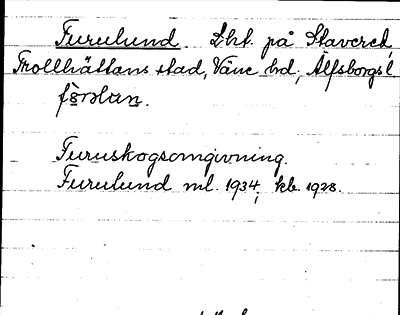 Furulund Lht. på Stavered
Trollhättans stad, Väne hd, Älfsborgs l
Furuskogsomgivning.
Furulund ml. 1934, kb. 1928.